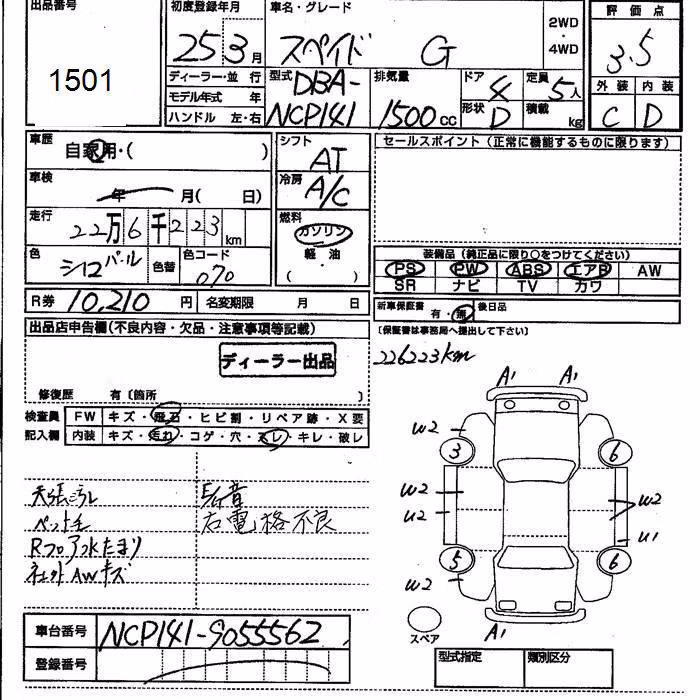 出品番号 初度登録年月 車名・グレード 2WD・4WD 評価点
1501 25 3月 スペイド G 3.5
ディーラー・並行 型式 DBA-NCP141 排気量 1500cc ドア 4 定員 5人 外装 内装
モデル年式 年 形状 D 積載 kg C D
ハンドル 左・右
車歴 自家用・( ) シフト AT セールスポイント(正常に機能するものに限ります)
車検 年 月( 日) 冷房 A/C
走行 22万6千223km 燃料 ガソリン・軽油・( )
色 シロパール 色替 色コード 070 装備品(純正品に限り○をつけてください)
PS PW ABS エアB AW
SR ナビ TV カワ
R券 10,210円 名変期限 月 日 新車保証書 有・無 後日品
(保証書は事務局へ提出して下さい)
出品店申告欄(不良内容・欠品・注意事項等記載)
ディーラー出品
226223km
修復歴 有〔箇所 〕
検査員 FW キズ・飛石・ヒビ割・リペア跡・X要
記入欄 内装 キズ・汚れ・コゲ・穴・スレ・キレ・破レ
天張シミ
ペット毛 右電格不良
Rフロア水たまり
社外AWキズ
A1 A1
W2
3 6
W2 W2
U2 U1
5 6
W2
A1
スペア
車台番号 NCP141-9055562
登録番号
型式指定 類別区分